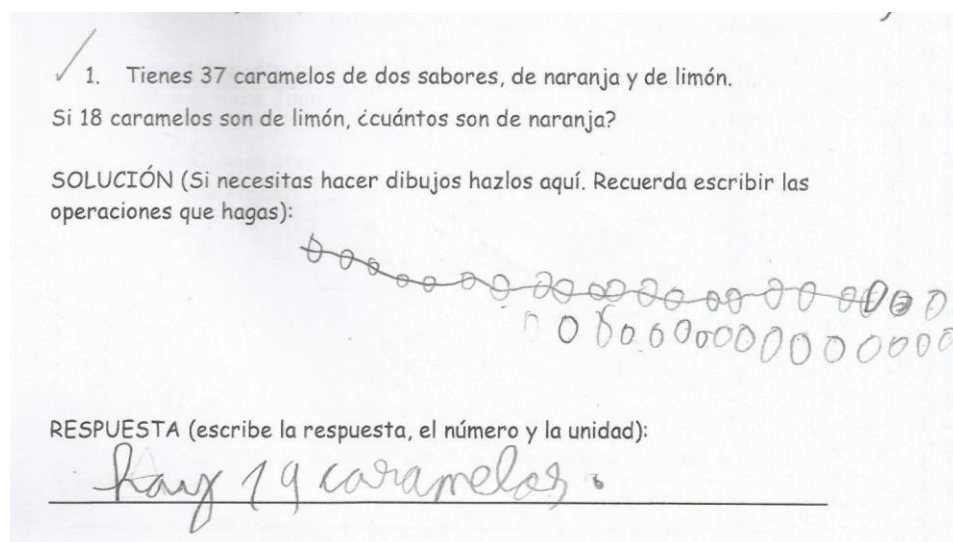 1. Tienes 37 caramelos de dos sabores, de naranja y de limón.
Si 18 caramelos son de limón, ¿cuántos son de naranja?
SOLUCIÓN (Si necesitas hacer dibujos hazlos aquí. Recuerda escribir las
operaciones que hagas):
RESPUESTA (escribe la respuesta, el número y la unidad):
hay 19 caramelos.